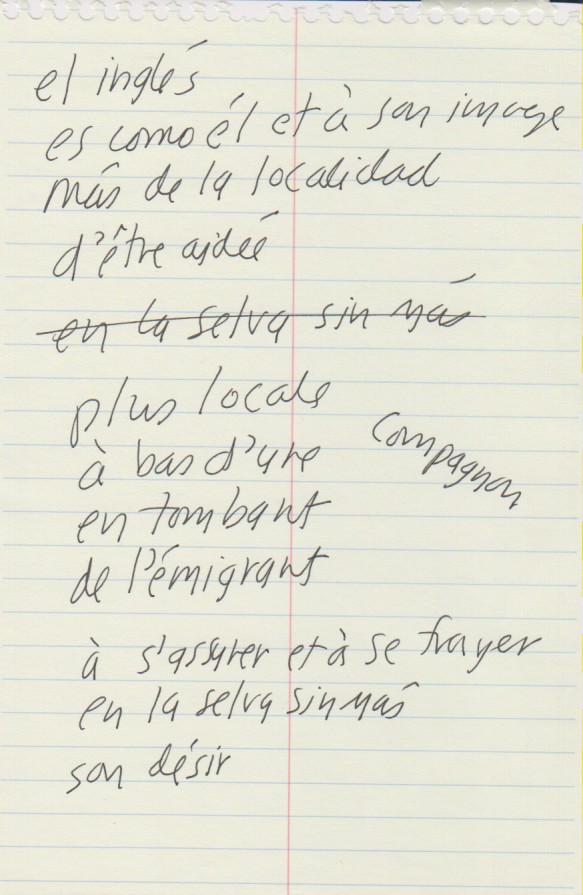 el inglés
es como él et à son image
más de la localidad
d'être aidée
en la selva sin más
plus locale
à bas d'une
Compagnon
en tombant
de l'émigrant
à s'assurer et à se frayer
en la selva sin más
son désir